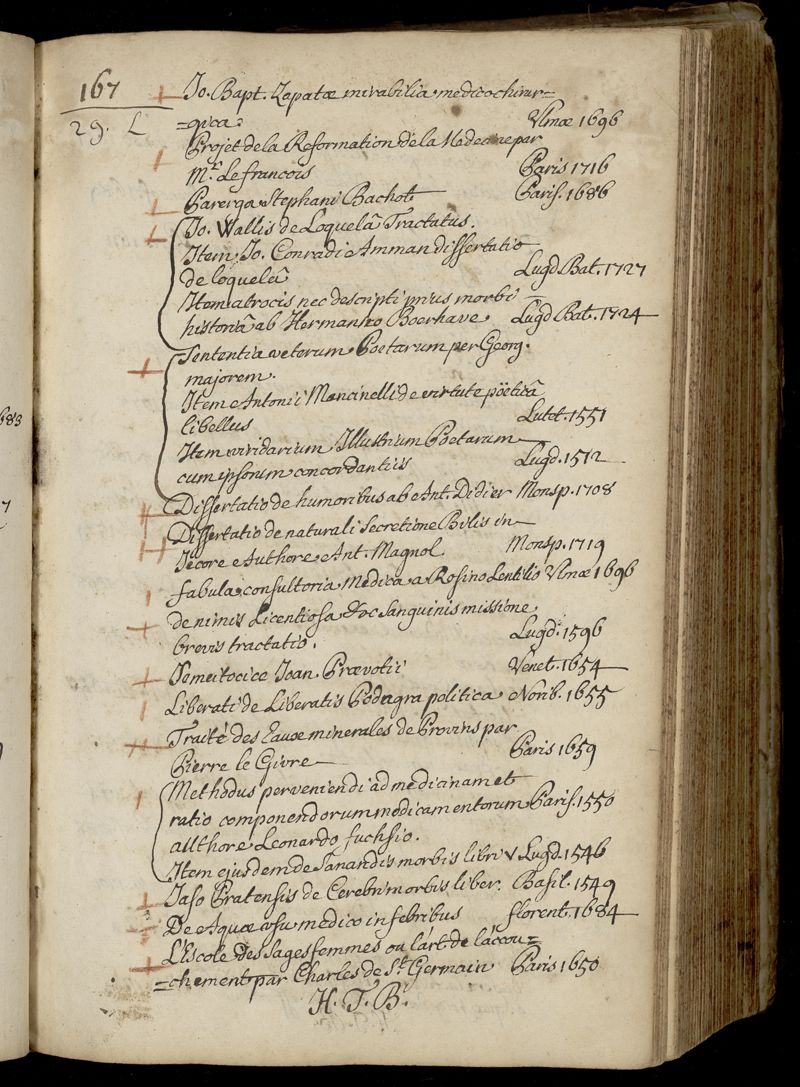 167
29. L
Jo. Bapt. Zapatæ mirabilia medicochirur=
=gica. Vlmæ 1696
Projet de la Reformation de la Medecine par
Mr. Le francois Paris 1716
Parerga Stephani Bachot Paris. 1686
Jo. Wallis de Loquelâ Tractatus.
Item Jo. Conradi Amman dissertatio
de loquelâ Lugd Bat. 1727
Item atrocis nec descripti prius morbi
historiâ ab Hermanno Boerhave Lugd Bat. 1724
Sententia veterum Poetarum per Georg.
majorem.
Item Antonii Mancinelli de virtute pöeticâ
libellus Lutet. 1551
Item viridarium Illustrium Poetarum
cum ipsorum concordantiis Lugd. 1512
Dissertatio de humoribus ab Ant. Didier Monsp. 1708
Dissertatio de naturali Secretione Bilis in
Jecore Authore Ant. Magnol Monsp. 1719
fabula consultoria Medica a Rosino Lentilio Vlmæ 1696
de nimis Licentiosa &oc Sanguinis missione
brevis tractatio. Lugd. 1596
Semeitocice Joan. Prævotii Venet. 1654
Liberati de Liberatis Podagra politica Norib. 1655
Traité des Eaux minerales de Provins par
Pierre le Givre Paris 1659
Methodus perveniendi ad medicinam et
ratio componendorum medicamentorum Paris. 1550
aúthore Leonardo fuchsio.
Item ejusdem de Sanandis morbis libri V Lugd. 1546
Jaso Pratensis de Cerebri morbis liber. Basil. 1549
De Aquæ usu medico in febribus florent. 1684
L'Escole des Sages femmes ou l'art de l'accou=
=chement par Charles de St. Germain Paris 1650
H. T. B.
683
7